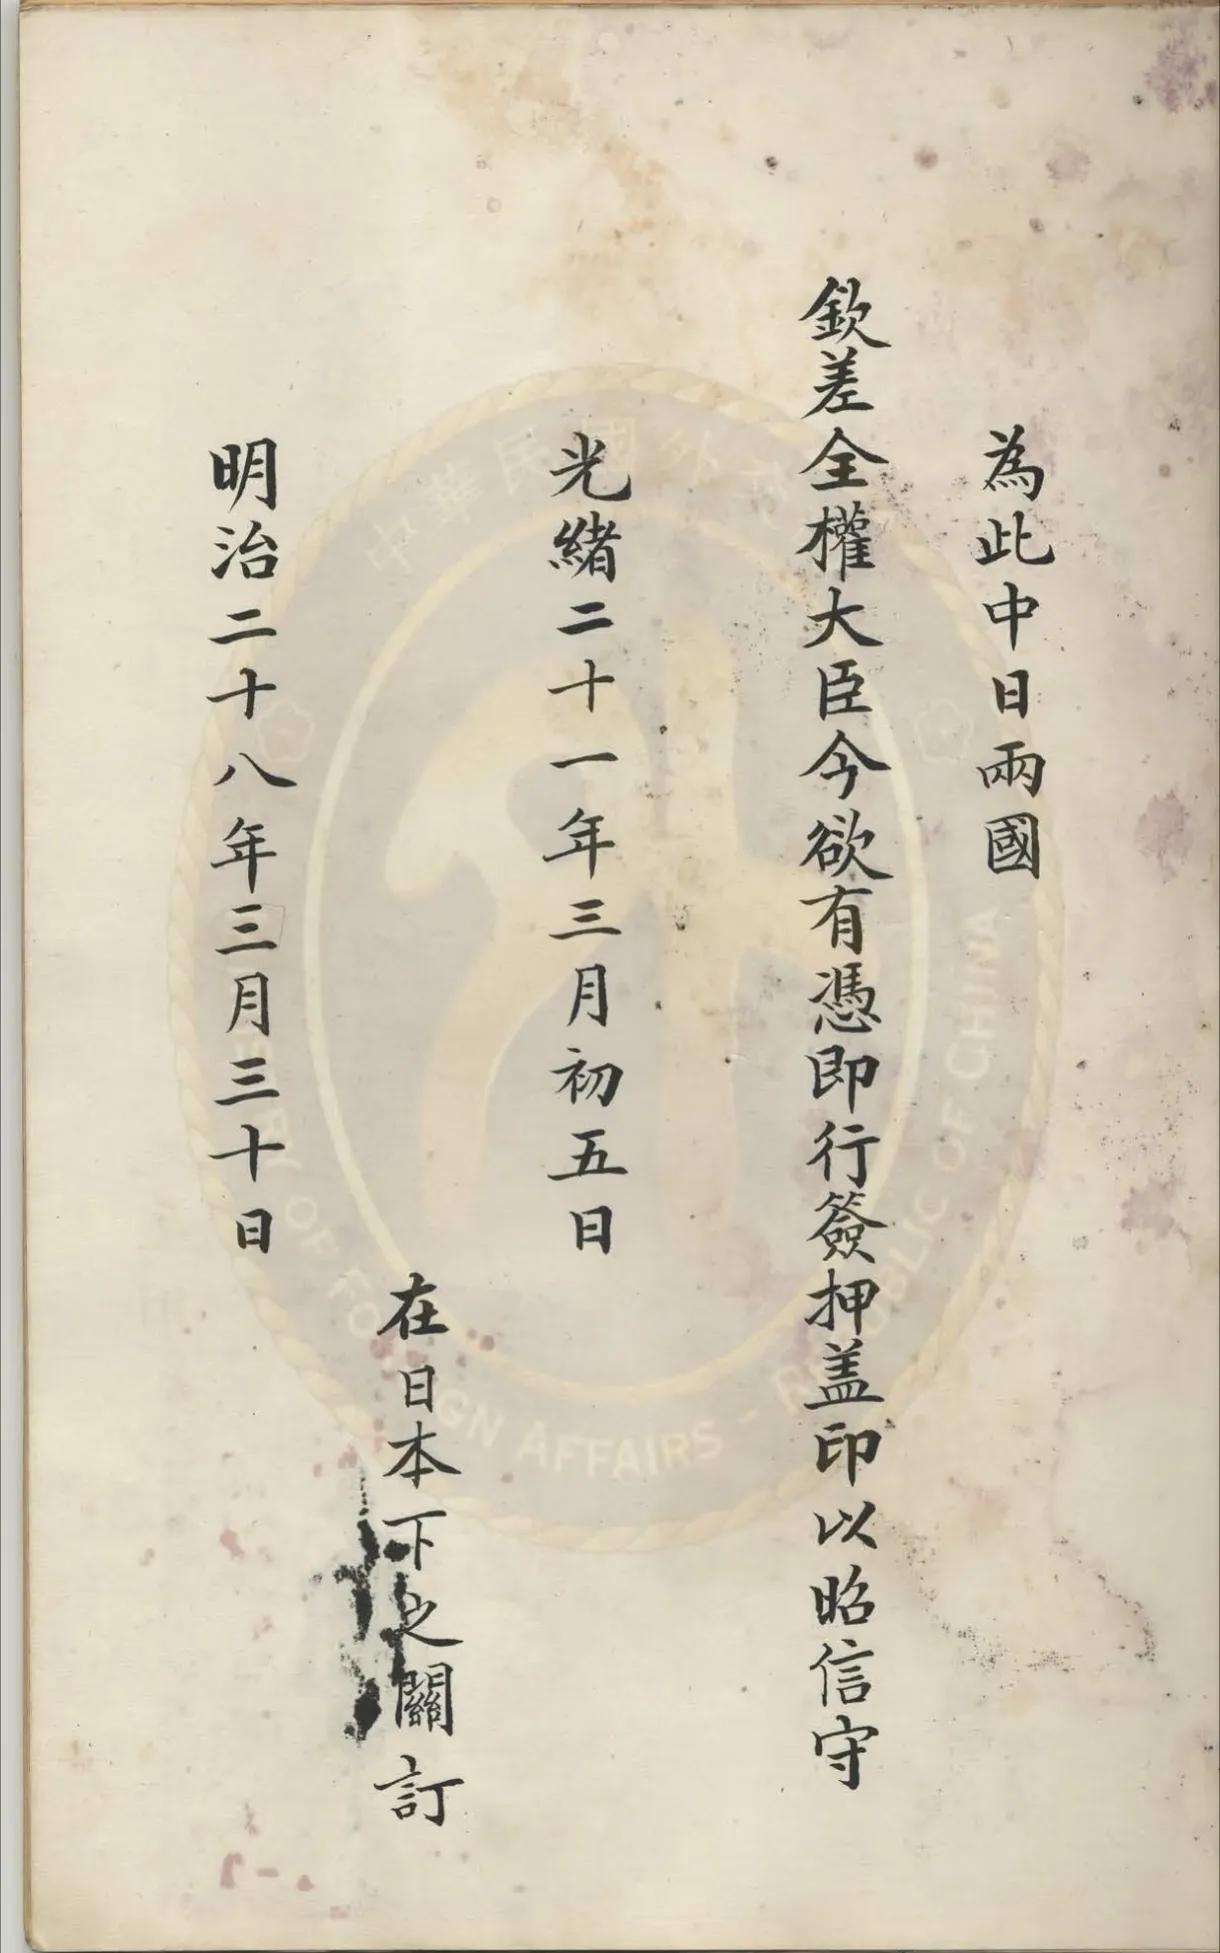 為此中日兩國
欽差全權大臣今欲有憑即行簽押盖印以昭信守
光緒二十一年三月初五日
在日本下之關訂
明治二十八年三月三十日
中華民國外交
OF FOREIGN AFFAIRS - REPUBLIC OF CHINA